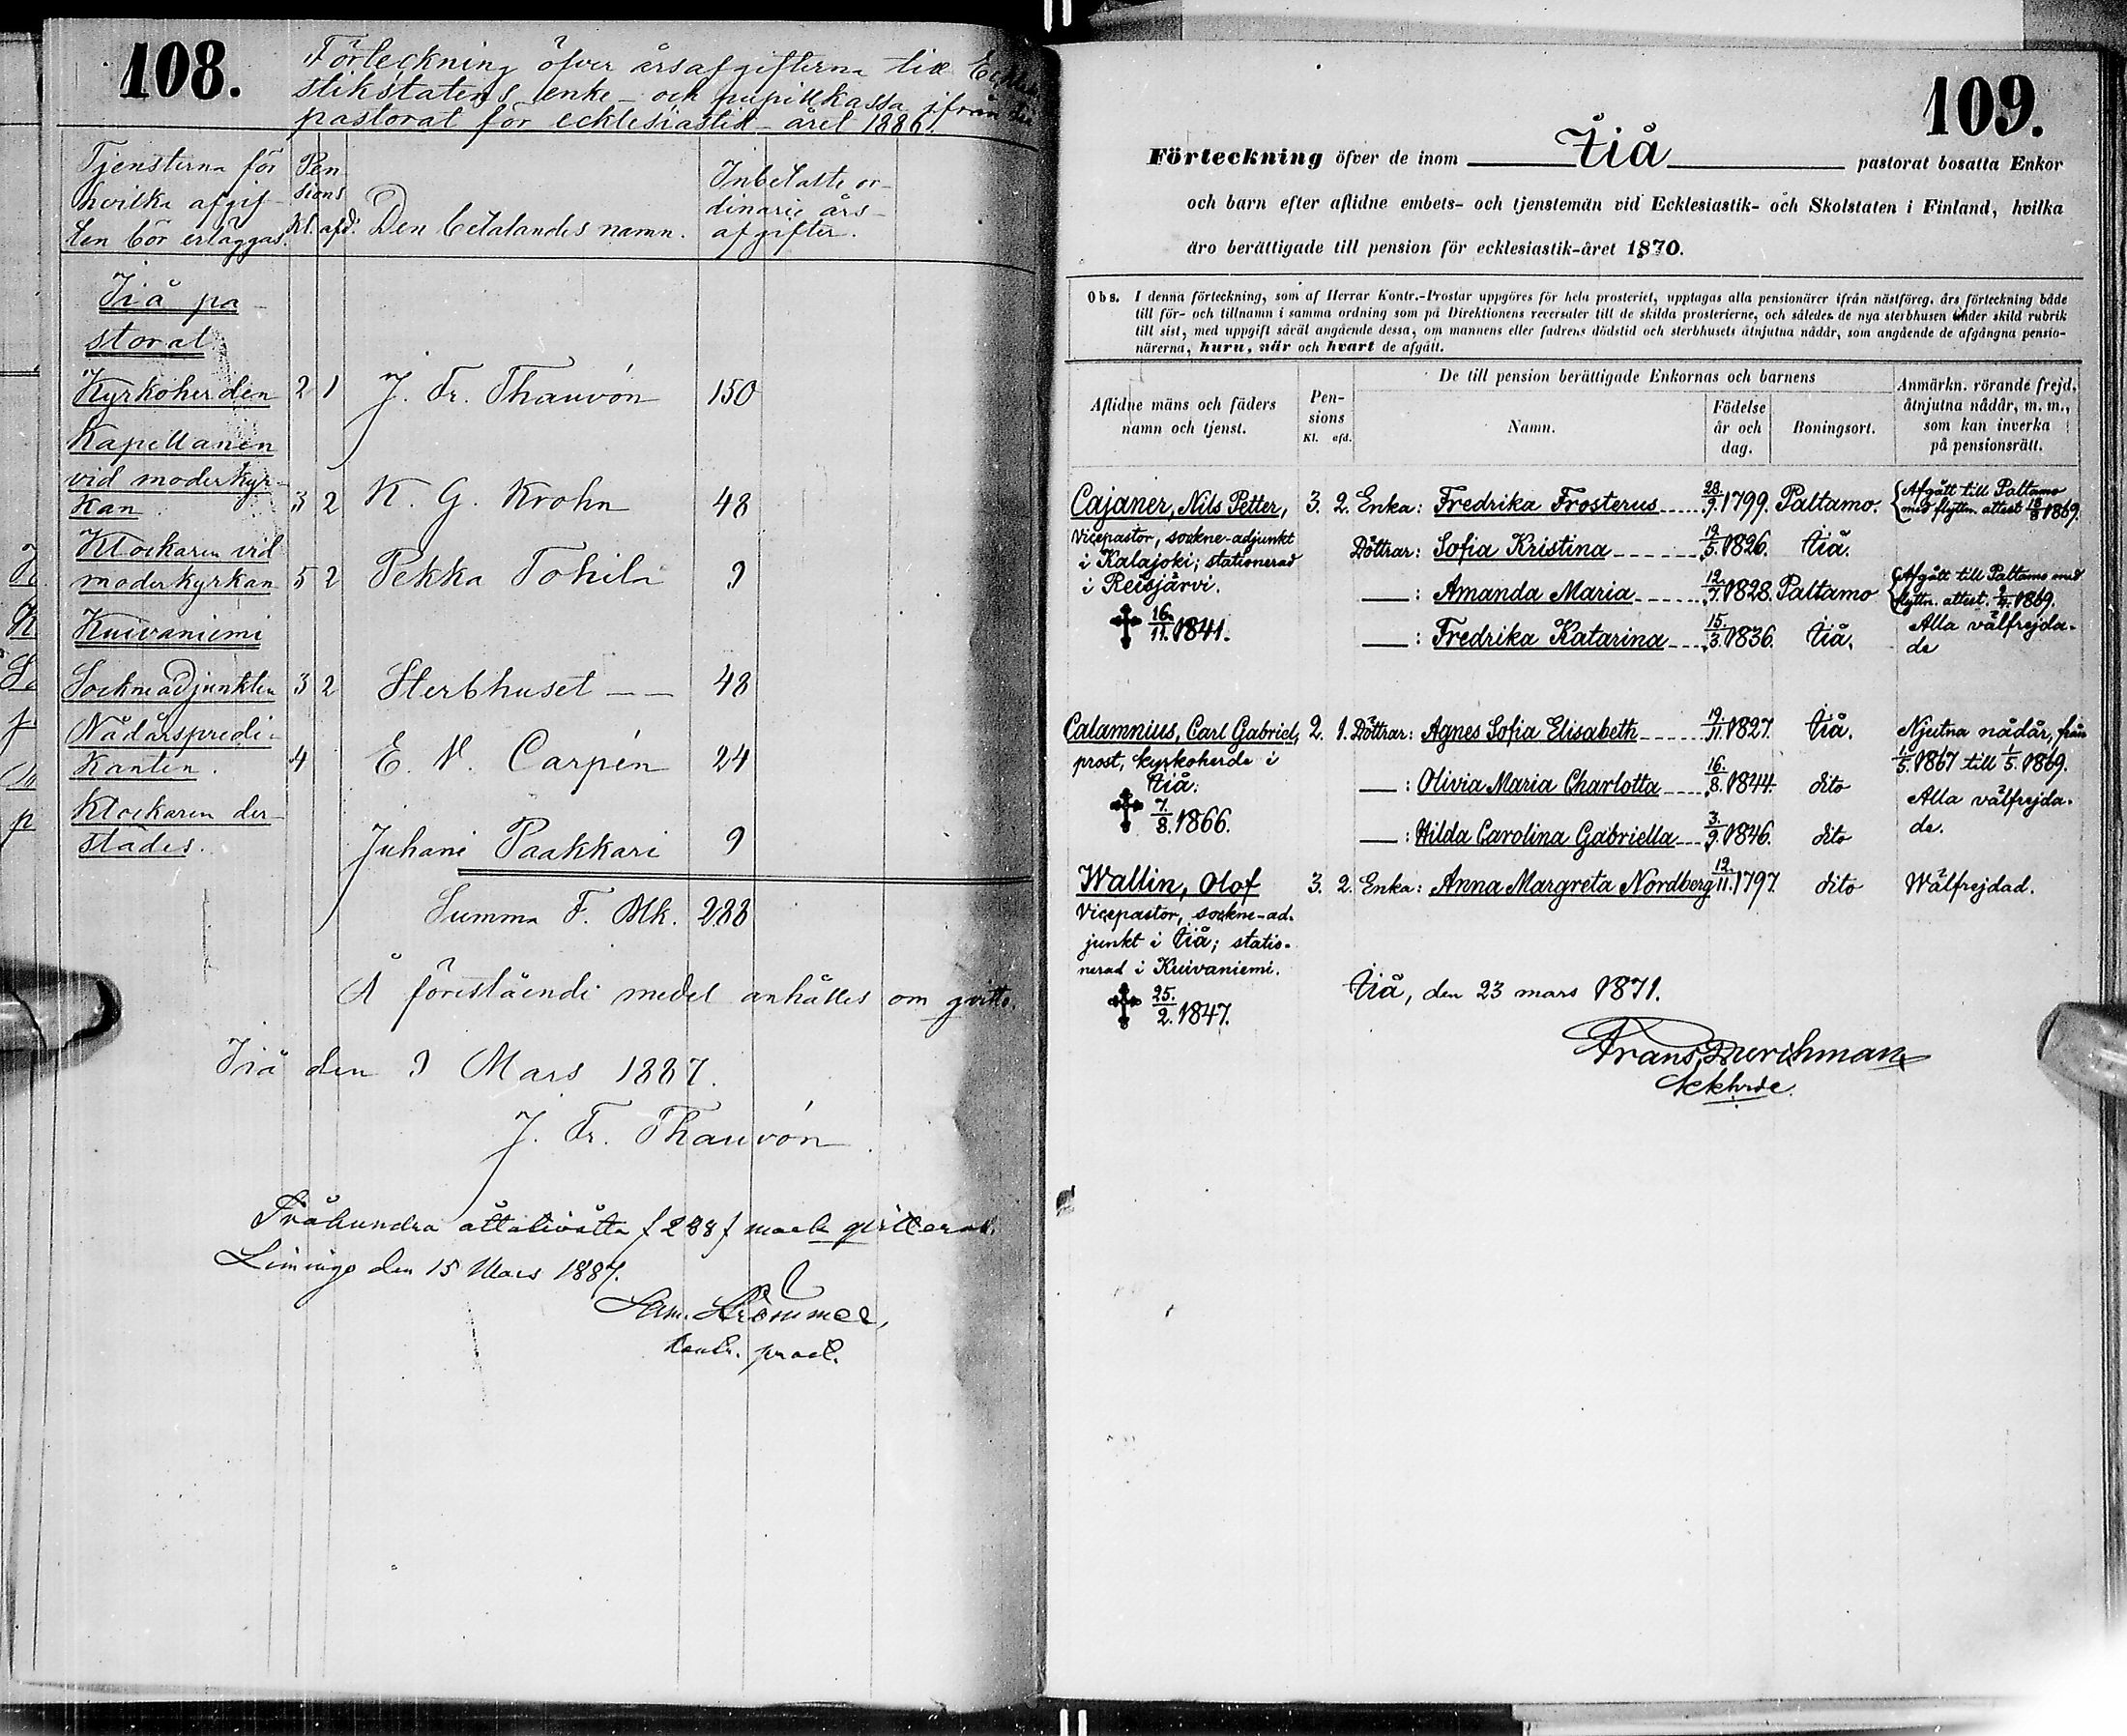 108.
Förteckning öfver årsafgifterna till Eckle
stikstatens enke- och pupillkassa ifrån
pastorat för ecklesiastik-året 1886.
Tjensterna för
hvilka afgif-
ten bör erläggas.
Pen
sions
Kl. afd.
Den betalandes namn.
Inbetalte or-
dinarie års-
afgifter.
Iiå pa-
storat
Kyrkoherden 2 1 J. Fr. Thauvón 150
Kapellanen
vid moderkyr-
kan 3 2 K. G. Krohn 48
Klockaren vid
moderkyrkan 5 2 Pekka Tohila 9
Kuivaniemi
Sockneadjunkten 3 2 Sterbhuset — — 48
Nådårspredi-
kanten. 4 E. V. Carpén 24
Klockaren der-
städes. Juhani Paakkari 9
Summa F. Mk. 288
Å förestående medel anhålles om qvitto.
Iiå den 9 Mars 1887.
J. Fr. Thauvón
Tvåhundra åttatioåtta f 288 f mark qvitteras.
Limingo den 15 Mars 1887.
Sam. Krömmer,
kontr. prost.
109.
Förteckning öfver de inom Iiå pastorat bosatta Enkor
och barn efter aflidne embets- och tjenstemän vid Ecklesiastik- och Skolstaten i Finland, hvilka
äro berättigade till pension för ecklesiastik-året 1870.
Obs. I denna förteckning, som af Herrar Kontr.-Prostar uppgöres för hela prosteriet, upptagas alla pensionärer ifrån nästföreg. års förteckning både
till för- och tillnamn i samma ordning som på Direktionens reversaler till de skilda prosterierne, och således de nya sterbhusen under skild rubrik
till sist, med uppgift såväl angående dessa, om mannens eller fadrens dödstid och sterbhusets åtnjutna nådår, som angående de afgångna pensio-
närerna, huru, när och hvart de afgått.
Aflidne mäns och fäders
namn och tjenst.
Pen-
sions
Kl. afd.
De till pension berättigade Enkornas och barnens
Namn.
Födelse
år och
dag.
Boningsort.
Anmärkn. rörande frejd,
åtnjutna nådår, m. m.,
som kan inverka
på pensionsrätt.
Cajaner, Nils Petter, 3. 2. Enka: Fredrika Frosterus 28/9. 1799. Paltamo. Afgått till Paltamo
med flyttn. attest 18/8 1869.
Vicepastor, sockne-adjunkt Döttrar: Sofia Kristina 19/5. 1826. Iiå.
i Kalajoki; stationerad
i Reisjärvi. —: Amanda Maria 12/7. 1828. Paltamo Afgått till Paltamo med
flyttn. attest. 2/4. 1869.
16/11. 1841. —: Fredrika Katarina 15/3. 1836. Iiå. Alla välfrejda-
de
Calamnius, Carl Gabriel, 2. 1. Döttrar: Agnes Sofia Elisabeth 19/11. 1827. Iiå. Njutna nådår, från
prost, kyrkoherde i 1/5. 1867 till 1/5. 1869.
Iiå. —: Olivia Maria Charlotta 16/8. 1844. dito Alla välfrejda-
7/8. 1866. —: Hilda Carolina Gabriella 3/9. 1846. dito de.
Wallin, Olof 3. 2. Enka: Anna Margreta Nordberg 19/11. 1797. dito Wälfrejdad.
Vicepastor, sockne-ad-
junkt i Iiå; statio-
nerad i Kuivaniemi.
25/2. 1847.
Iiå, den 23 mars 1871.
Frans Durchman